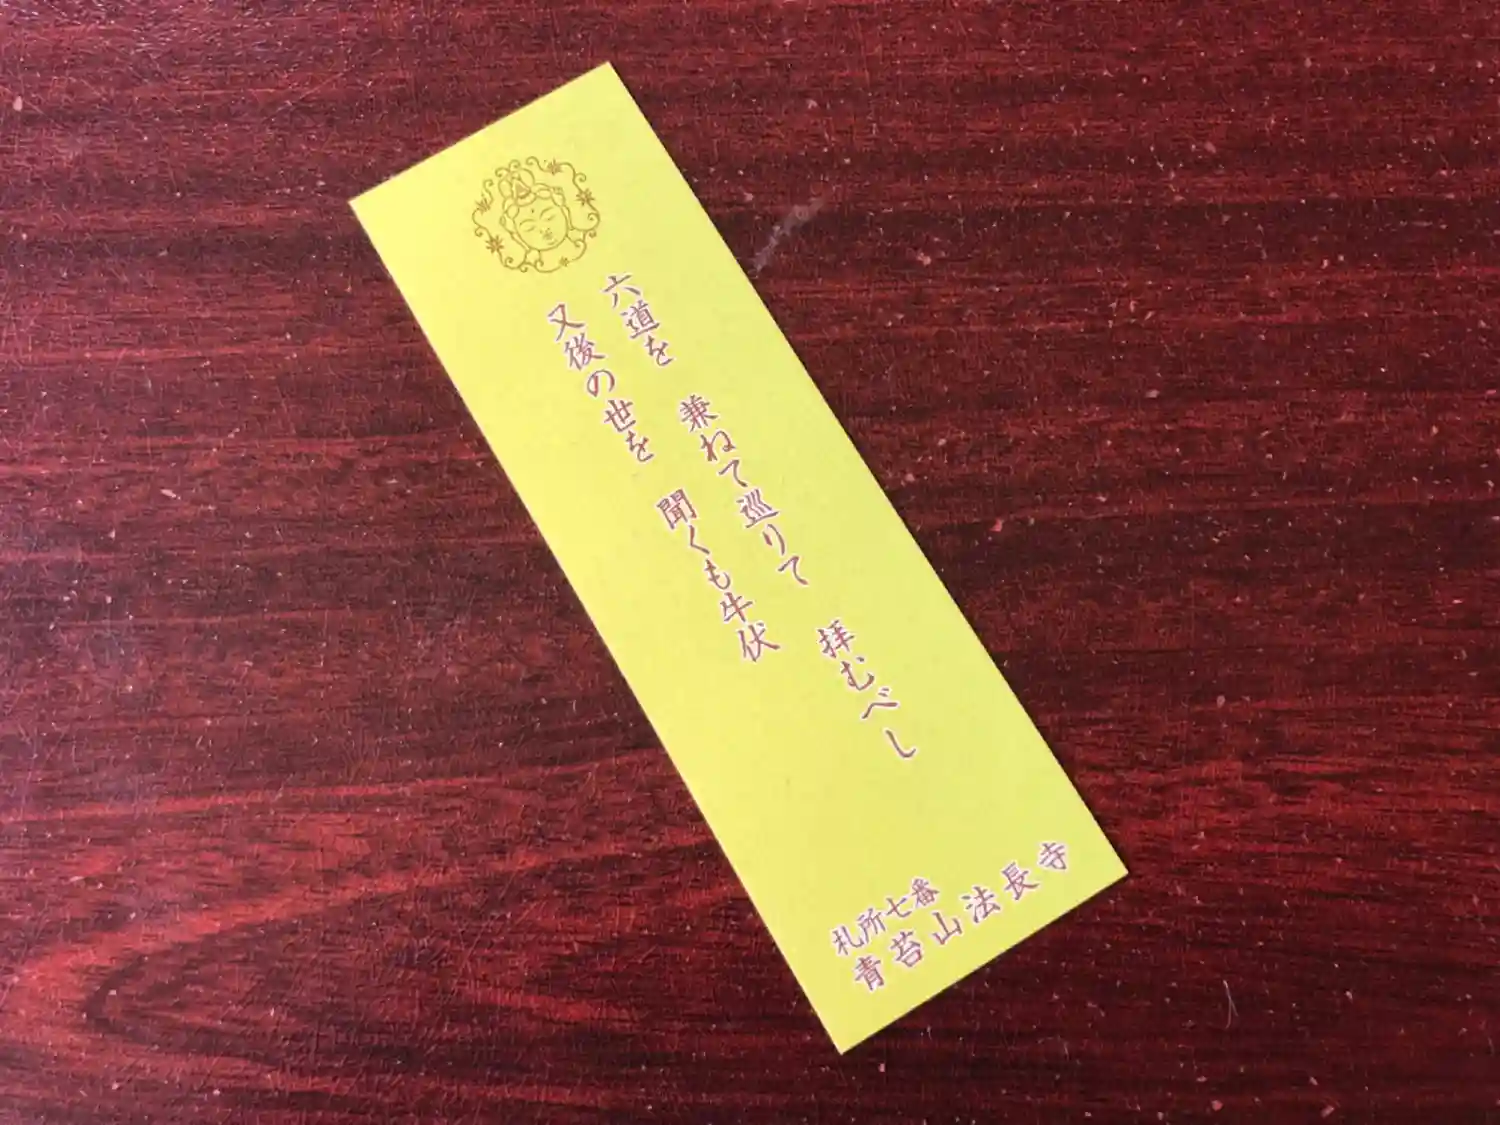 六道を 兼ねて巡りて 拝むべし
又後の世を 聞くも牛伏
札所七番
青苔山法長寺